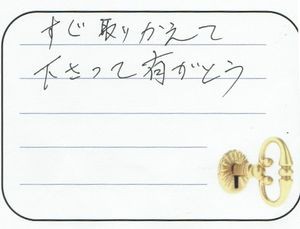 すじ取りかえて
下さって有がとう